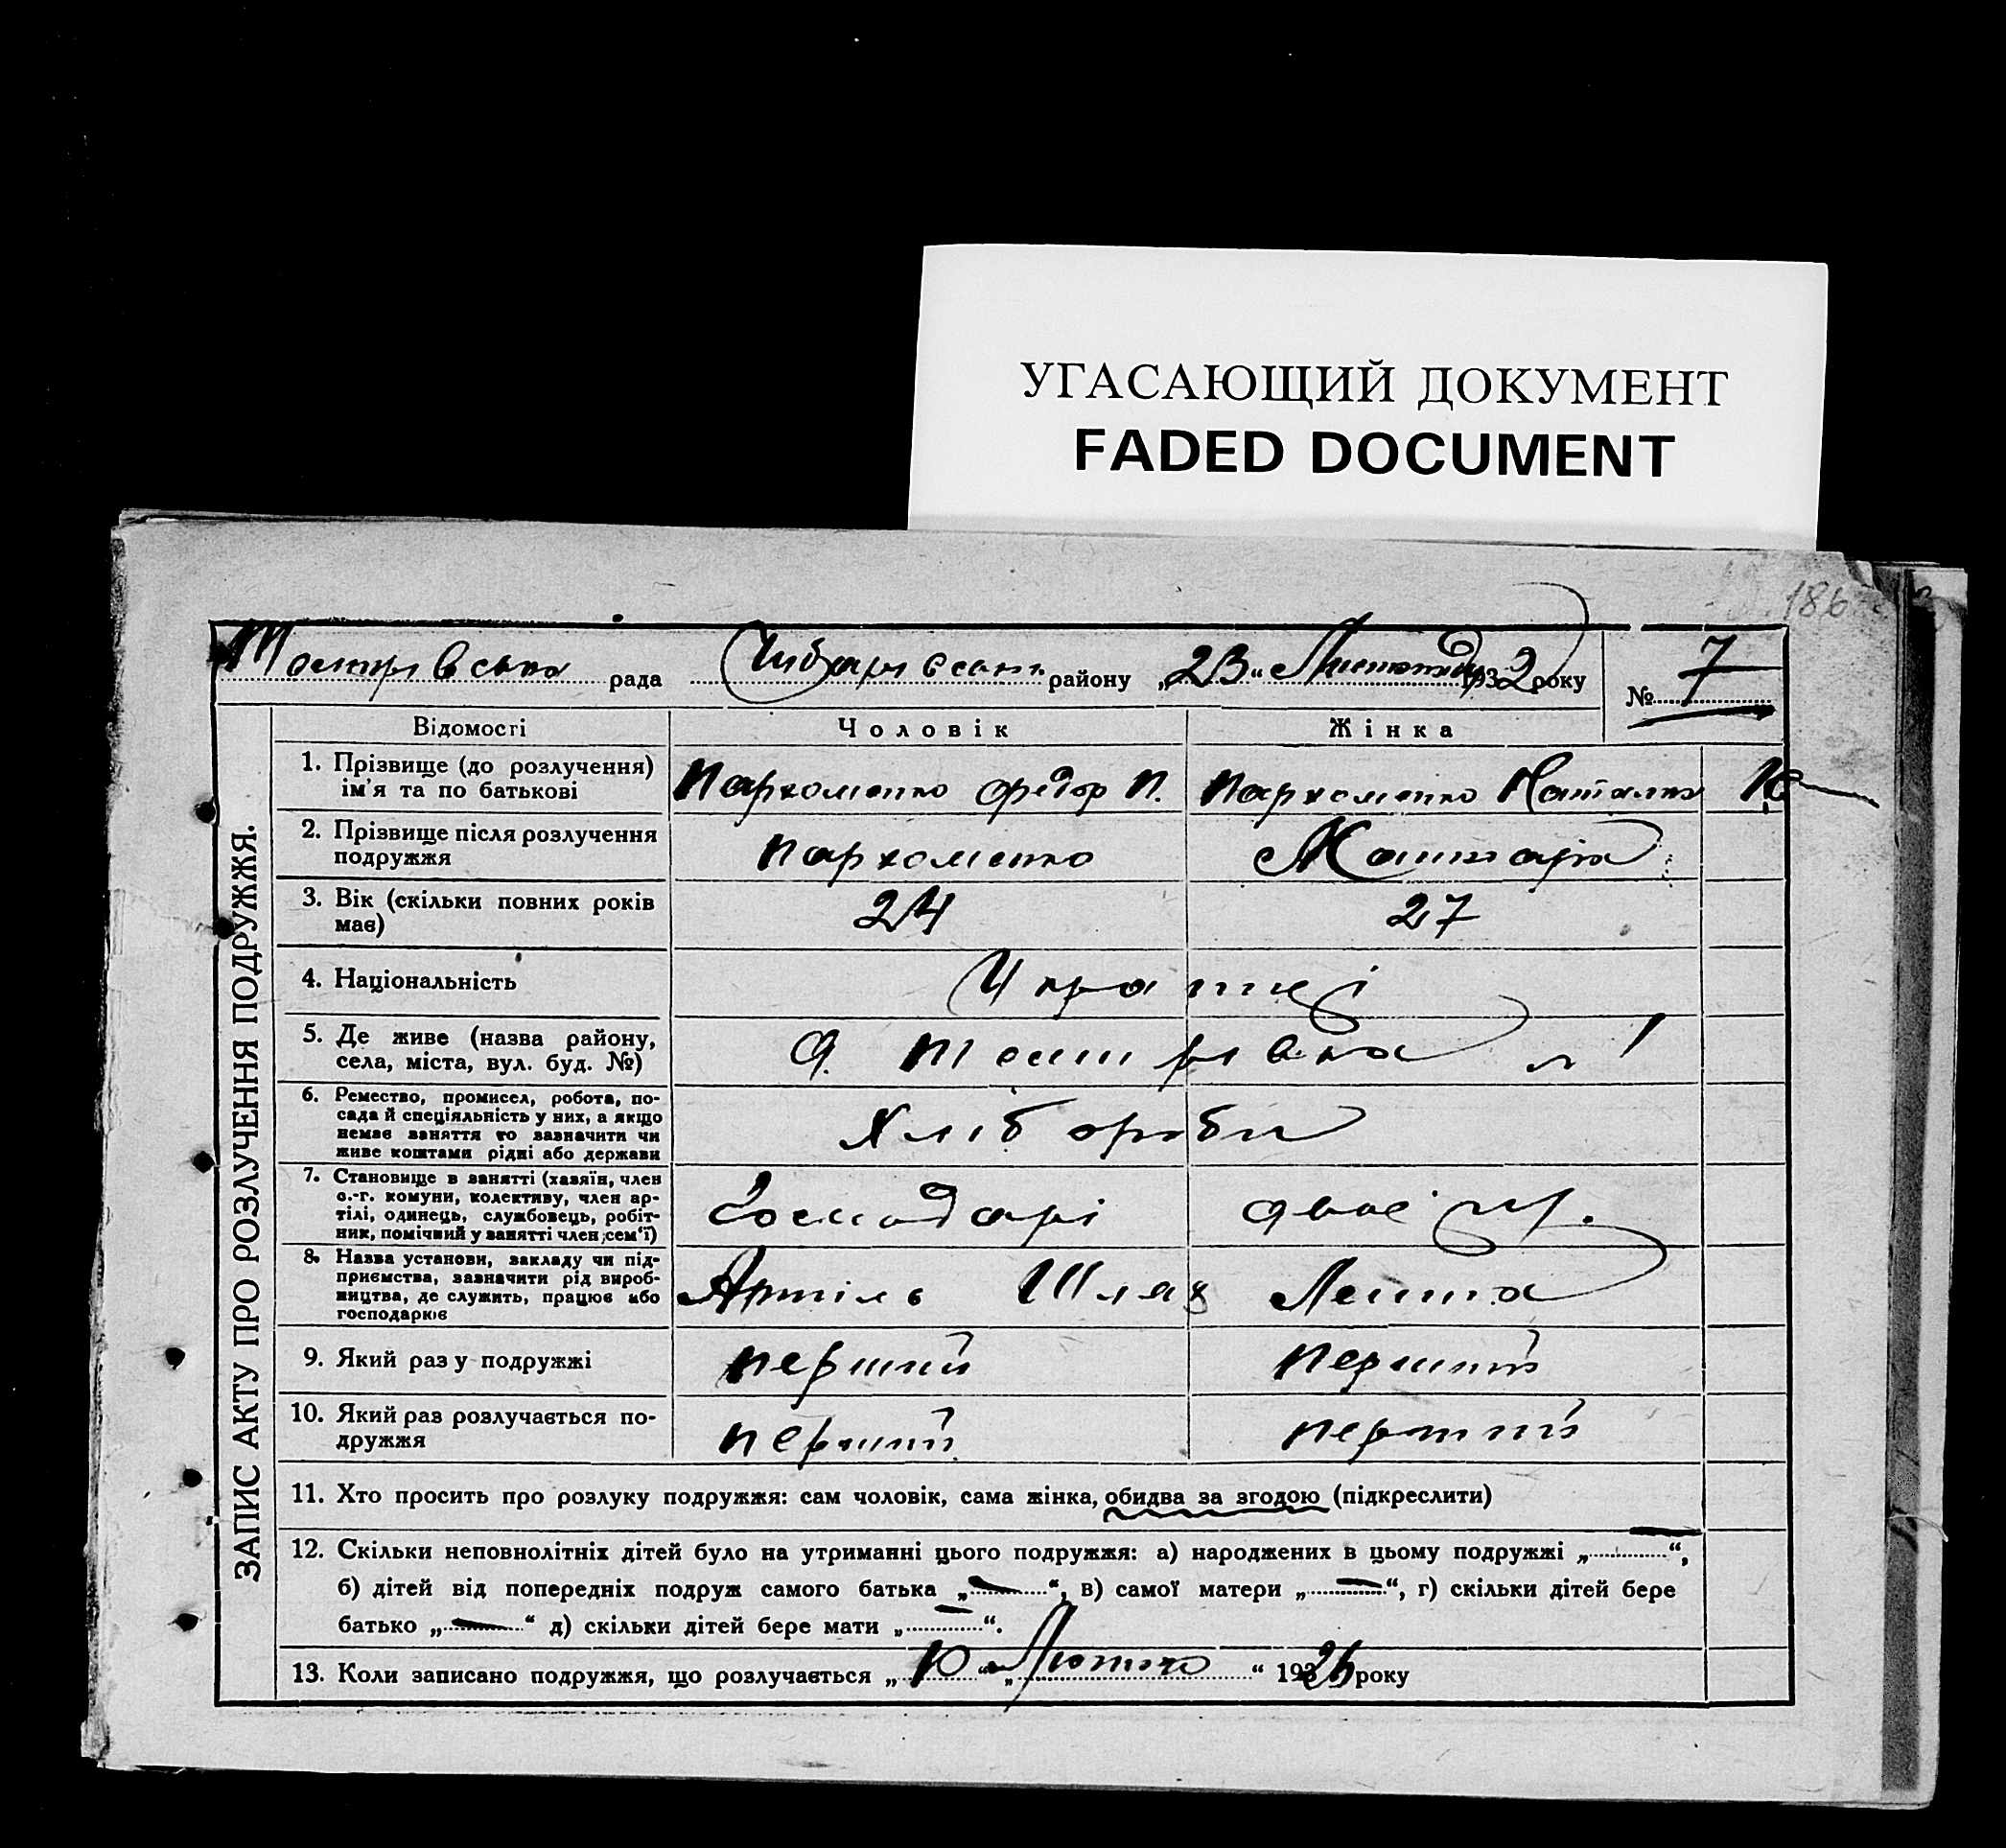 УГАСАЮЩИЙ ДОКУМЕНТ
FADED DOCUMENT
186
рада району „23“ Листопада 1932 року № 7
ЗАПИС АКТУ ПРО РОЗЛУЧЕННЯ ПОДРУЖЖЯ.
Відомості Чоловік Жінка
1. Прізвище (до розлучення)
ім'я та по батькові
Пархоменко Федор П. Пархоменко Наталка
2. Прізвище після розлучення
подружжя
Пархоменко
3. Вік (скільки повних років
має)
24 27
4. Національність
Українці
5. Де живе (назва району,
села, міста, вул. буд. №)
6. Ремество, промисел, робота, по-
сада й спеціяльність у них, а якщо
немає заняття то зазначити чи
живе коштами рідні або держави
Хлібороби
7. Становище в занятті (хазяїн, член
с.-г. комуни, колективу, член ар-
тілі, одинець, службовець, робіт-
ник, помічний у занятті член сем'ї)
Господарі
8. Назва установи, закладу чи під-
приємства, зазначити рід вироб-
ництва, де служить, працює або
господарює
Артіль Шлях Леніна
9. Який раз у подружжі
перший перший
10. Який раз розлучається по-
дружжя
перший перший
11. Хто просить про розлуку подружжя: сам чоловік, сама жінка, обидва за згодою (підкреслити)
12. Скільки неповнолітніх дітей було на утриманні цього подружжя: а) народжених в цьому подружжі „—“,
б) дітей від попередніх подруж самого батька „—“, в) самої матери „—“, г) скільки дітей бере
батько „—“ д) скільки дітей бере мати „—“.
13. Коли записано подружжя, що розлучається „10“ „Лютого“ 1926 року